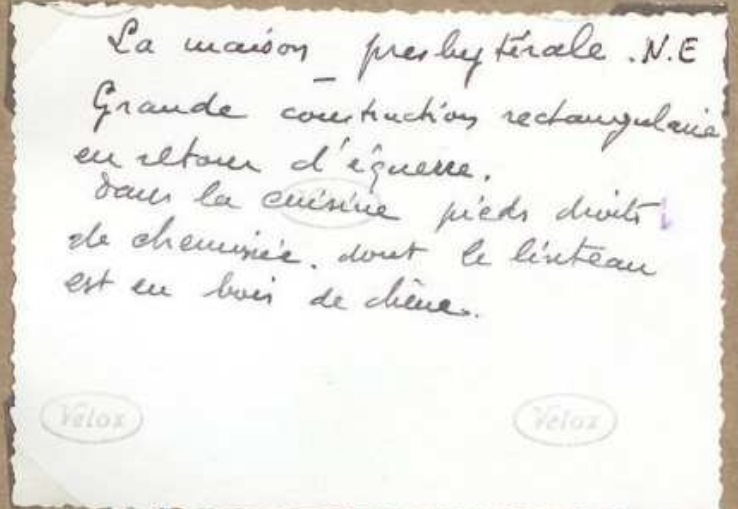 La maison presbytérale. N.E
Grande construction rectangulaire
en retour d'équerre.
Dans la cuisine pieds droits
de cheminée. dont le linteau
est en bois de chêne.
Velox Velox